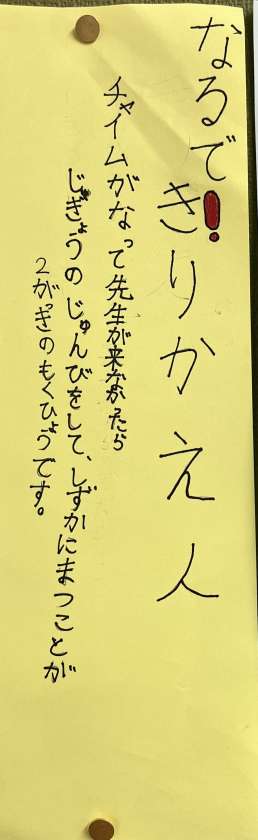 なるで❗きりかえ人
チャイムがなって先生が来なかったら
じゅぎょうのじゅんびをして、しずかにまつことが
2がっきのもくひょうです。